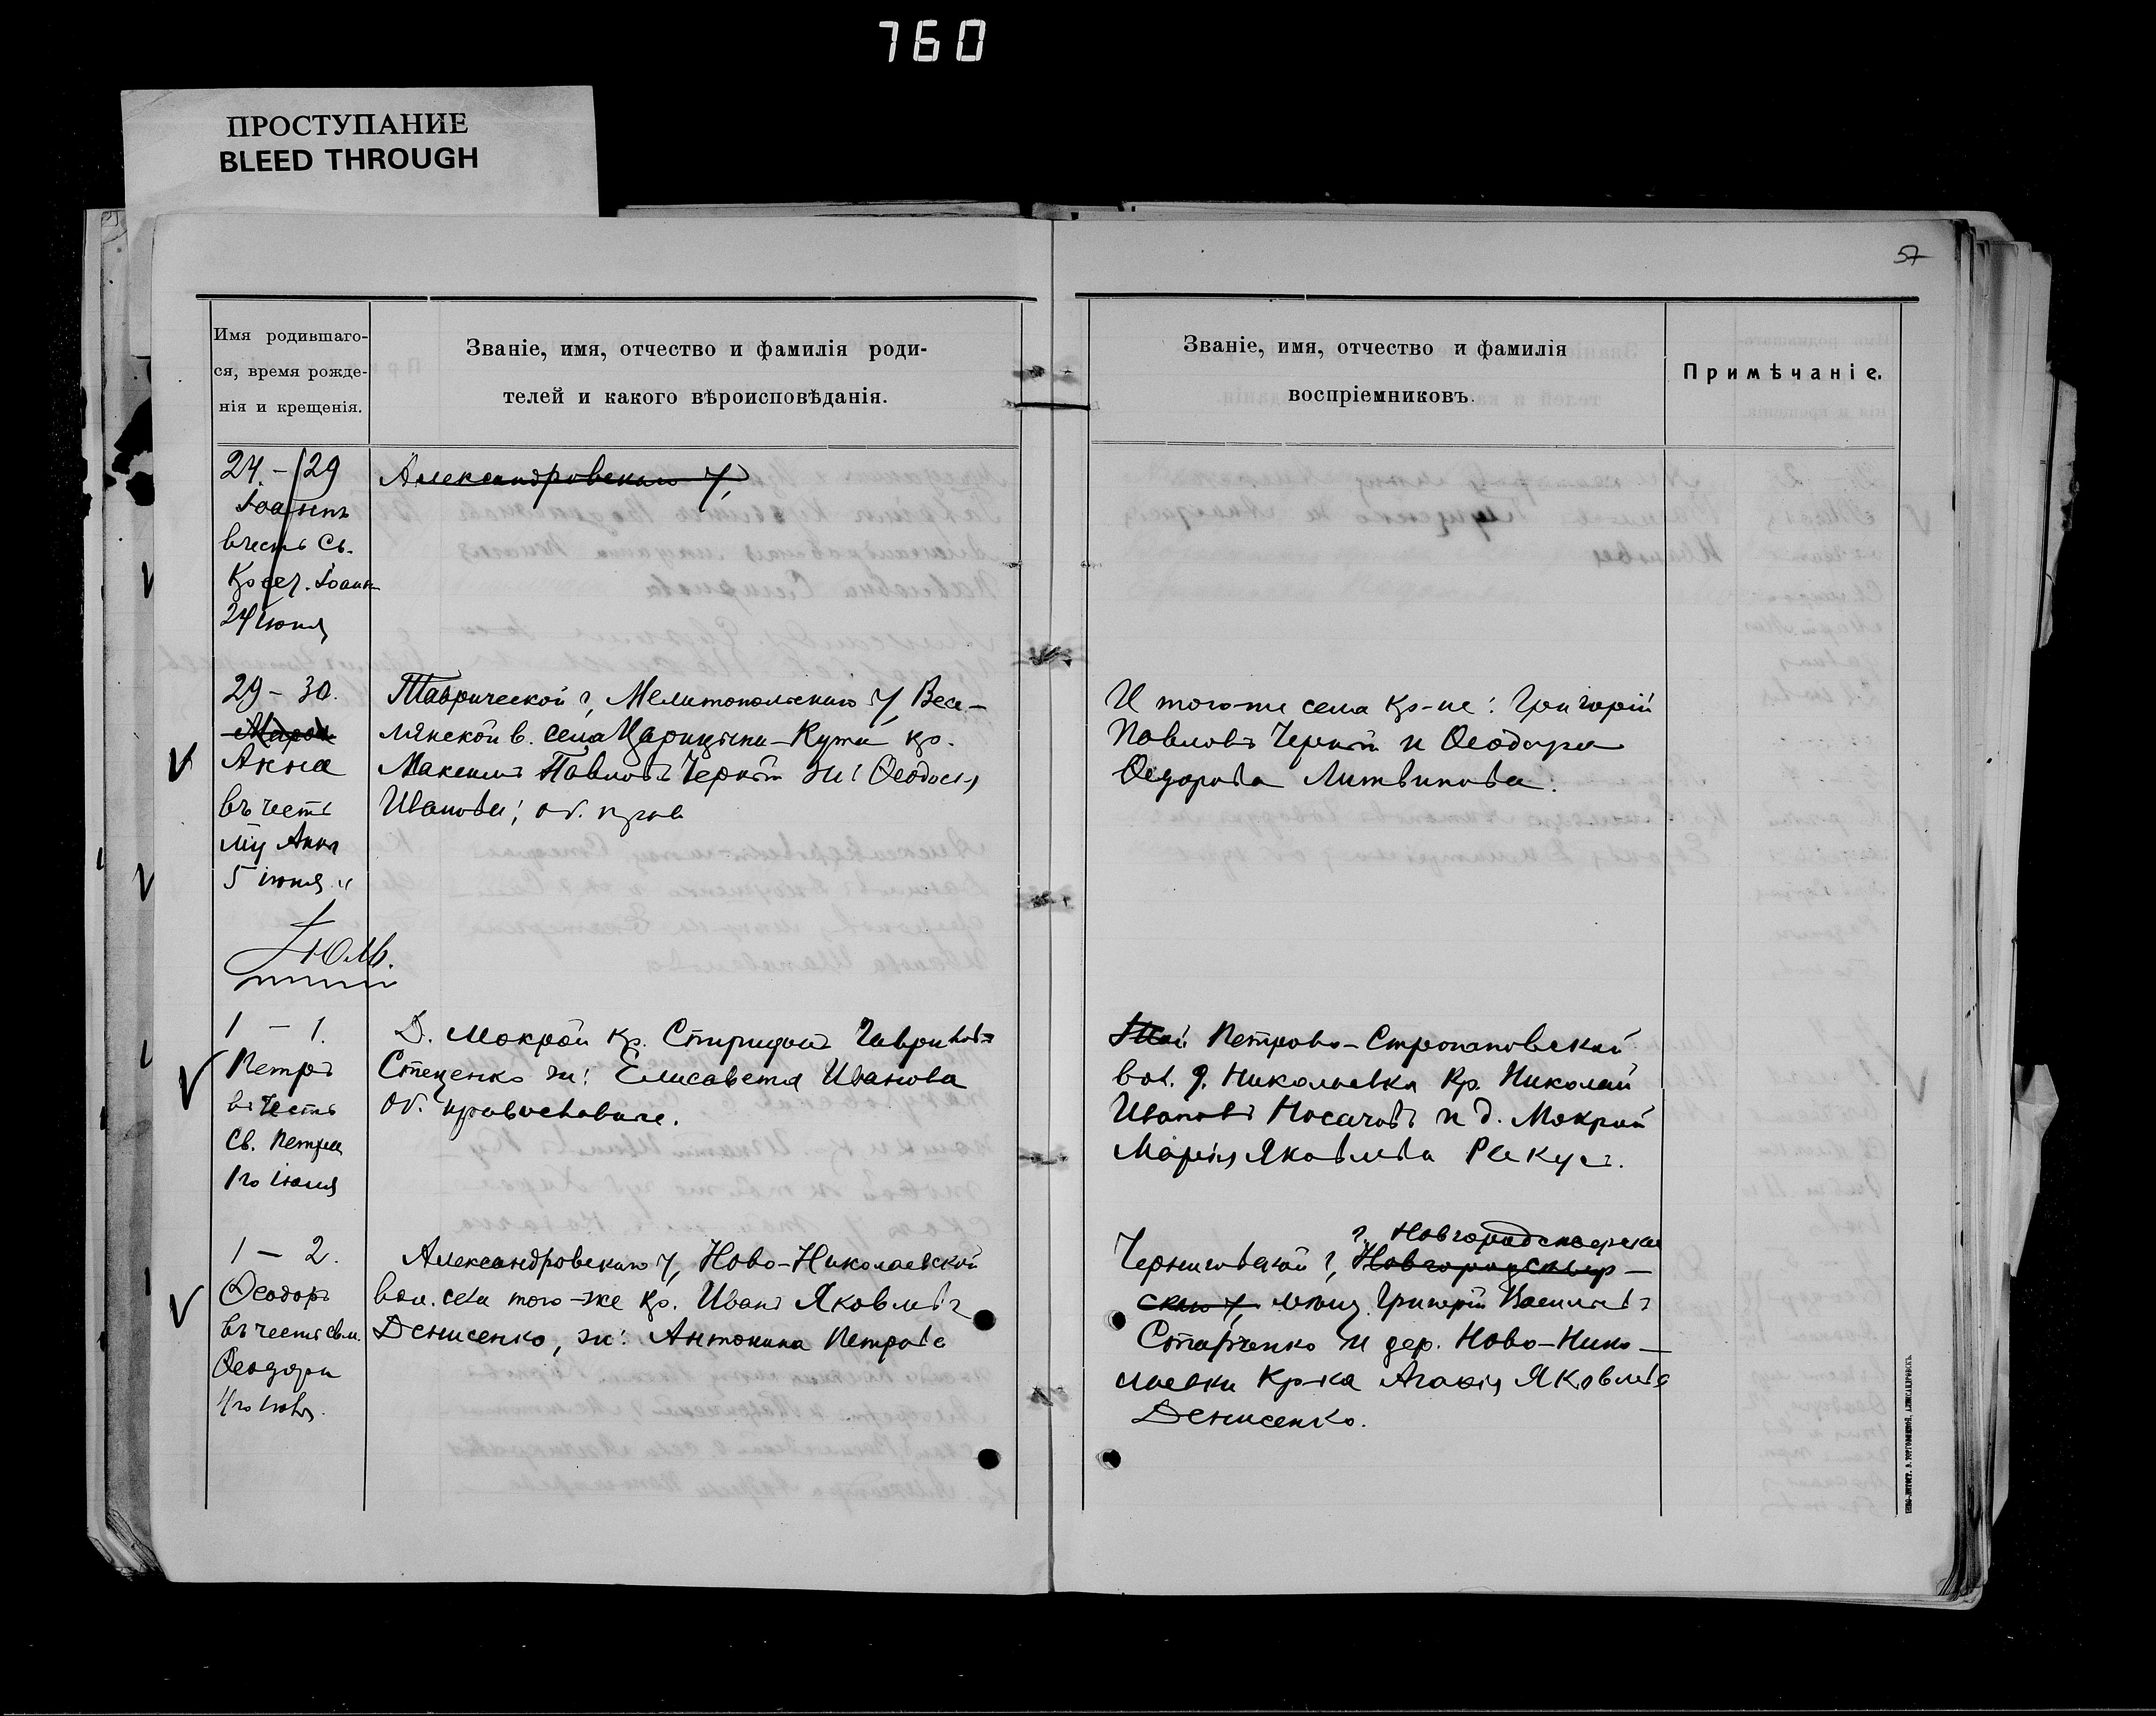 760
ПРОСТУПАНИЕ
BLEED THROUGH
57
Имя родившаго-
ся, время рожде-
нія и крещенія.
Званіе, имя, отчество и фамилія роди-
телей и какого вѣроисповѣданія.
Званіе, имя, отчество и фамилія
воспріемниковъ.
Примѣчаніе.
24. – 29
Іоаннъ
въ честь Св.
24 іюня
Александровскаго у,
29 – 30.
Анна
въ честь
Анна
5 іюля
Таврической г, Мелитопольскаго у, Весе-
лянской в. села Царицыни-Кута кр.
Максимъ Павловъ Черный ж: Ѳеодосія
Иванова; об. прав
И того-же села кр-не: Григорій
Павловъ Черный и Ѳеодора
Ѳедорова Литвинова.
Іюль.
1 – 1.
Петръ
въ честь
Св. Петра
1го іюля
Д. Мокрой кр. Спиридонъ Гавриловъ
Стеценко ж: Елисавета Иванова
об. православные.
Петрово-Строгановской
вол. д. Николаевка кр. Николай
Ивановъ Носачовъ и д. Мокрой
Марія Яковлева Ракус.
1 – 2.
Ѳеодоръ
въ честь свм.
Ѳеодора
4го іюля.
Александровскаго у, Ново-Николаевской
вол. села того-же кр. Иванъ Яковлевъ
Денисенко, ж: Антонина Петрова
г. Новгородсѣверска
Черниговской г, Новгородсѣвер-
скаго у, мѣщ. Григорій Васильевъ
Старченко и дер. Ново-Нико-
лаевки Кр-ка Агафія Яковлева
Денисенко.